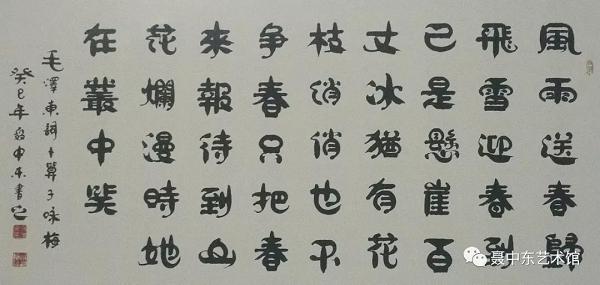 風雨送春歸
飛雪迎春到
已是懸崖百
丈冰猶有花
枝俏俏也不
争春只把春
來報待到山
花爛漫時她
在叢中笑
毛澤東詞卜算子咏梅
癸巳年聶中东書
聂中东艺术馆